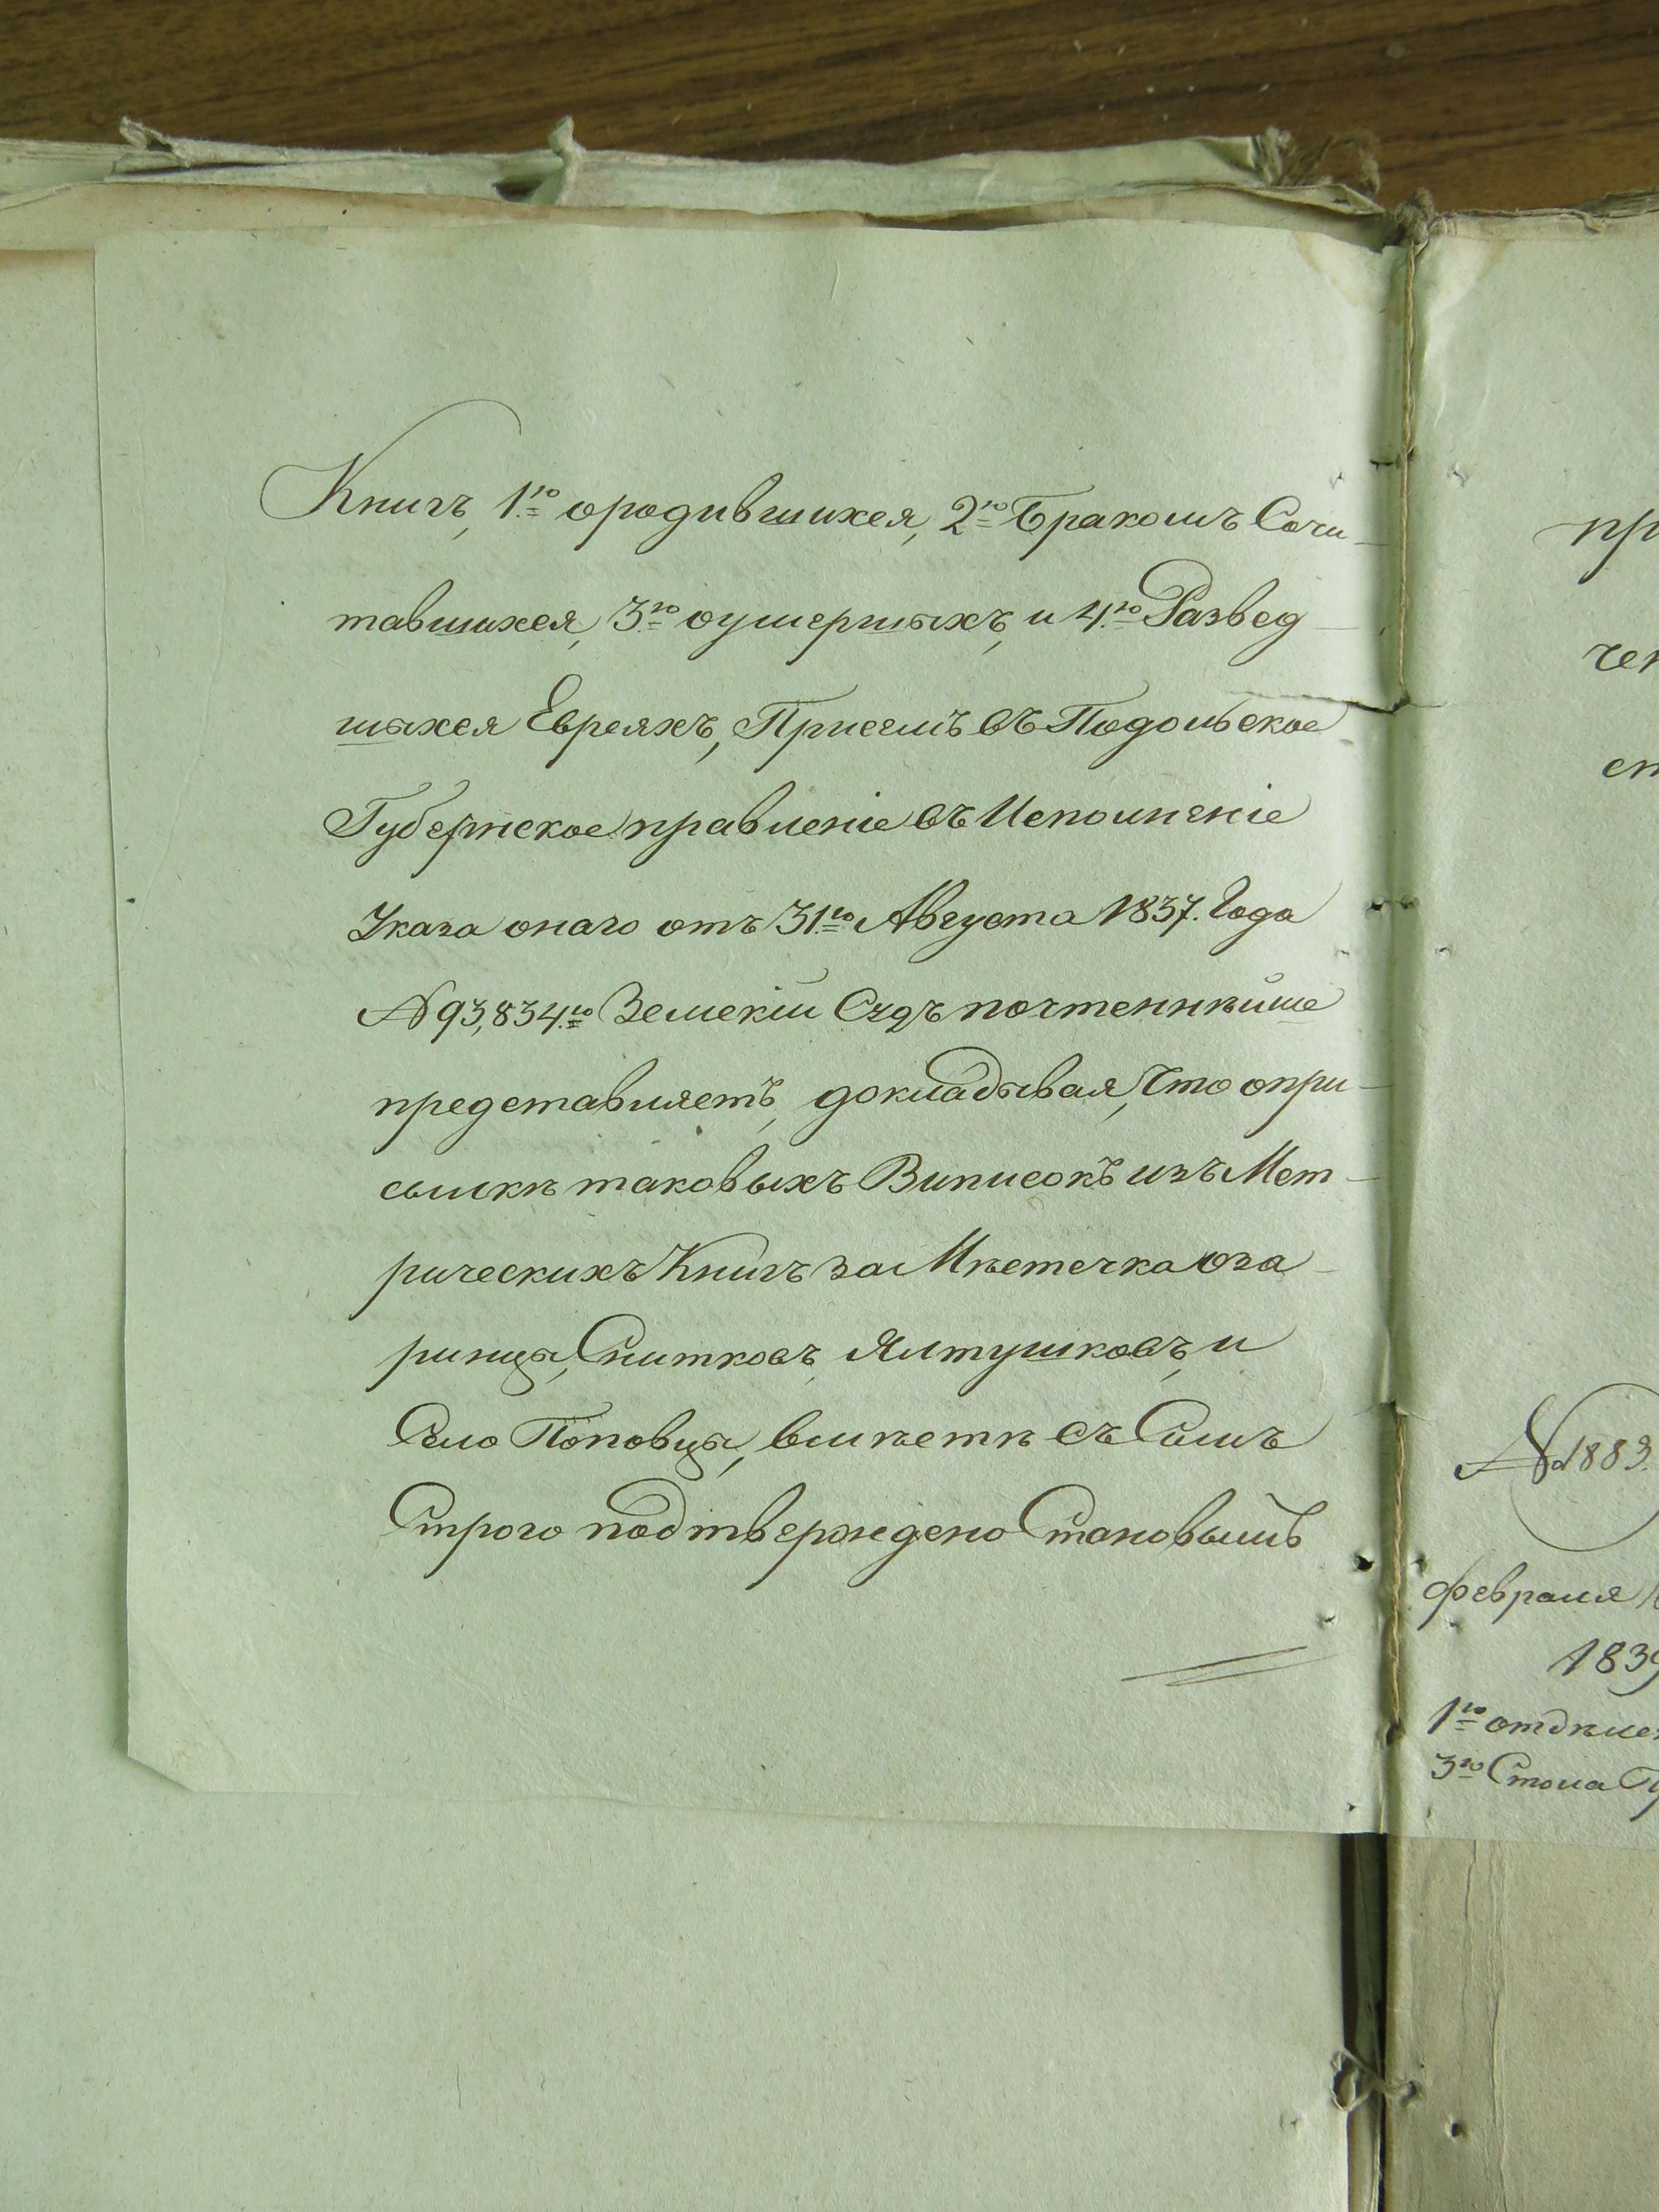 Книгъ, 1го ородившихся, 2го Бракомъ Сочи-
тавшихся, 3го оумершыхъ, и 4го Развед-
шыхся Евреяхъ, Присемъ въ Подольское
Губернское правленіе въ Исполненіе
Указа онаго отъ 31го Августа 1837. Года
№ 93,834го Земскій Судъ почтеннѣйше
представляетъ, докладывая, Что опри-
сылкѣ таковыхъ Виписокъ изъ Мет-
рическихъ Книгъ за Мѣстечка Оза-
ринцы, Снитковъ, Ялтушковъ, и
Село Поповцы, вмѣстѣ съ Симъ
Строго подтверждено Становымъ
пр
чен
ст
№ 1883.
февраля
1839
1го отдѣле
3го Стола Гу